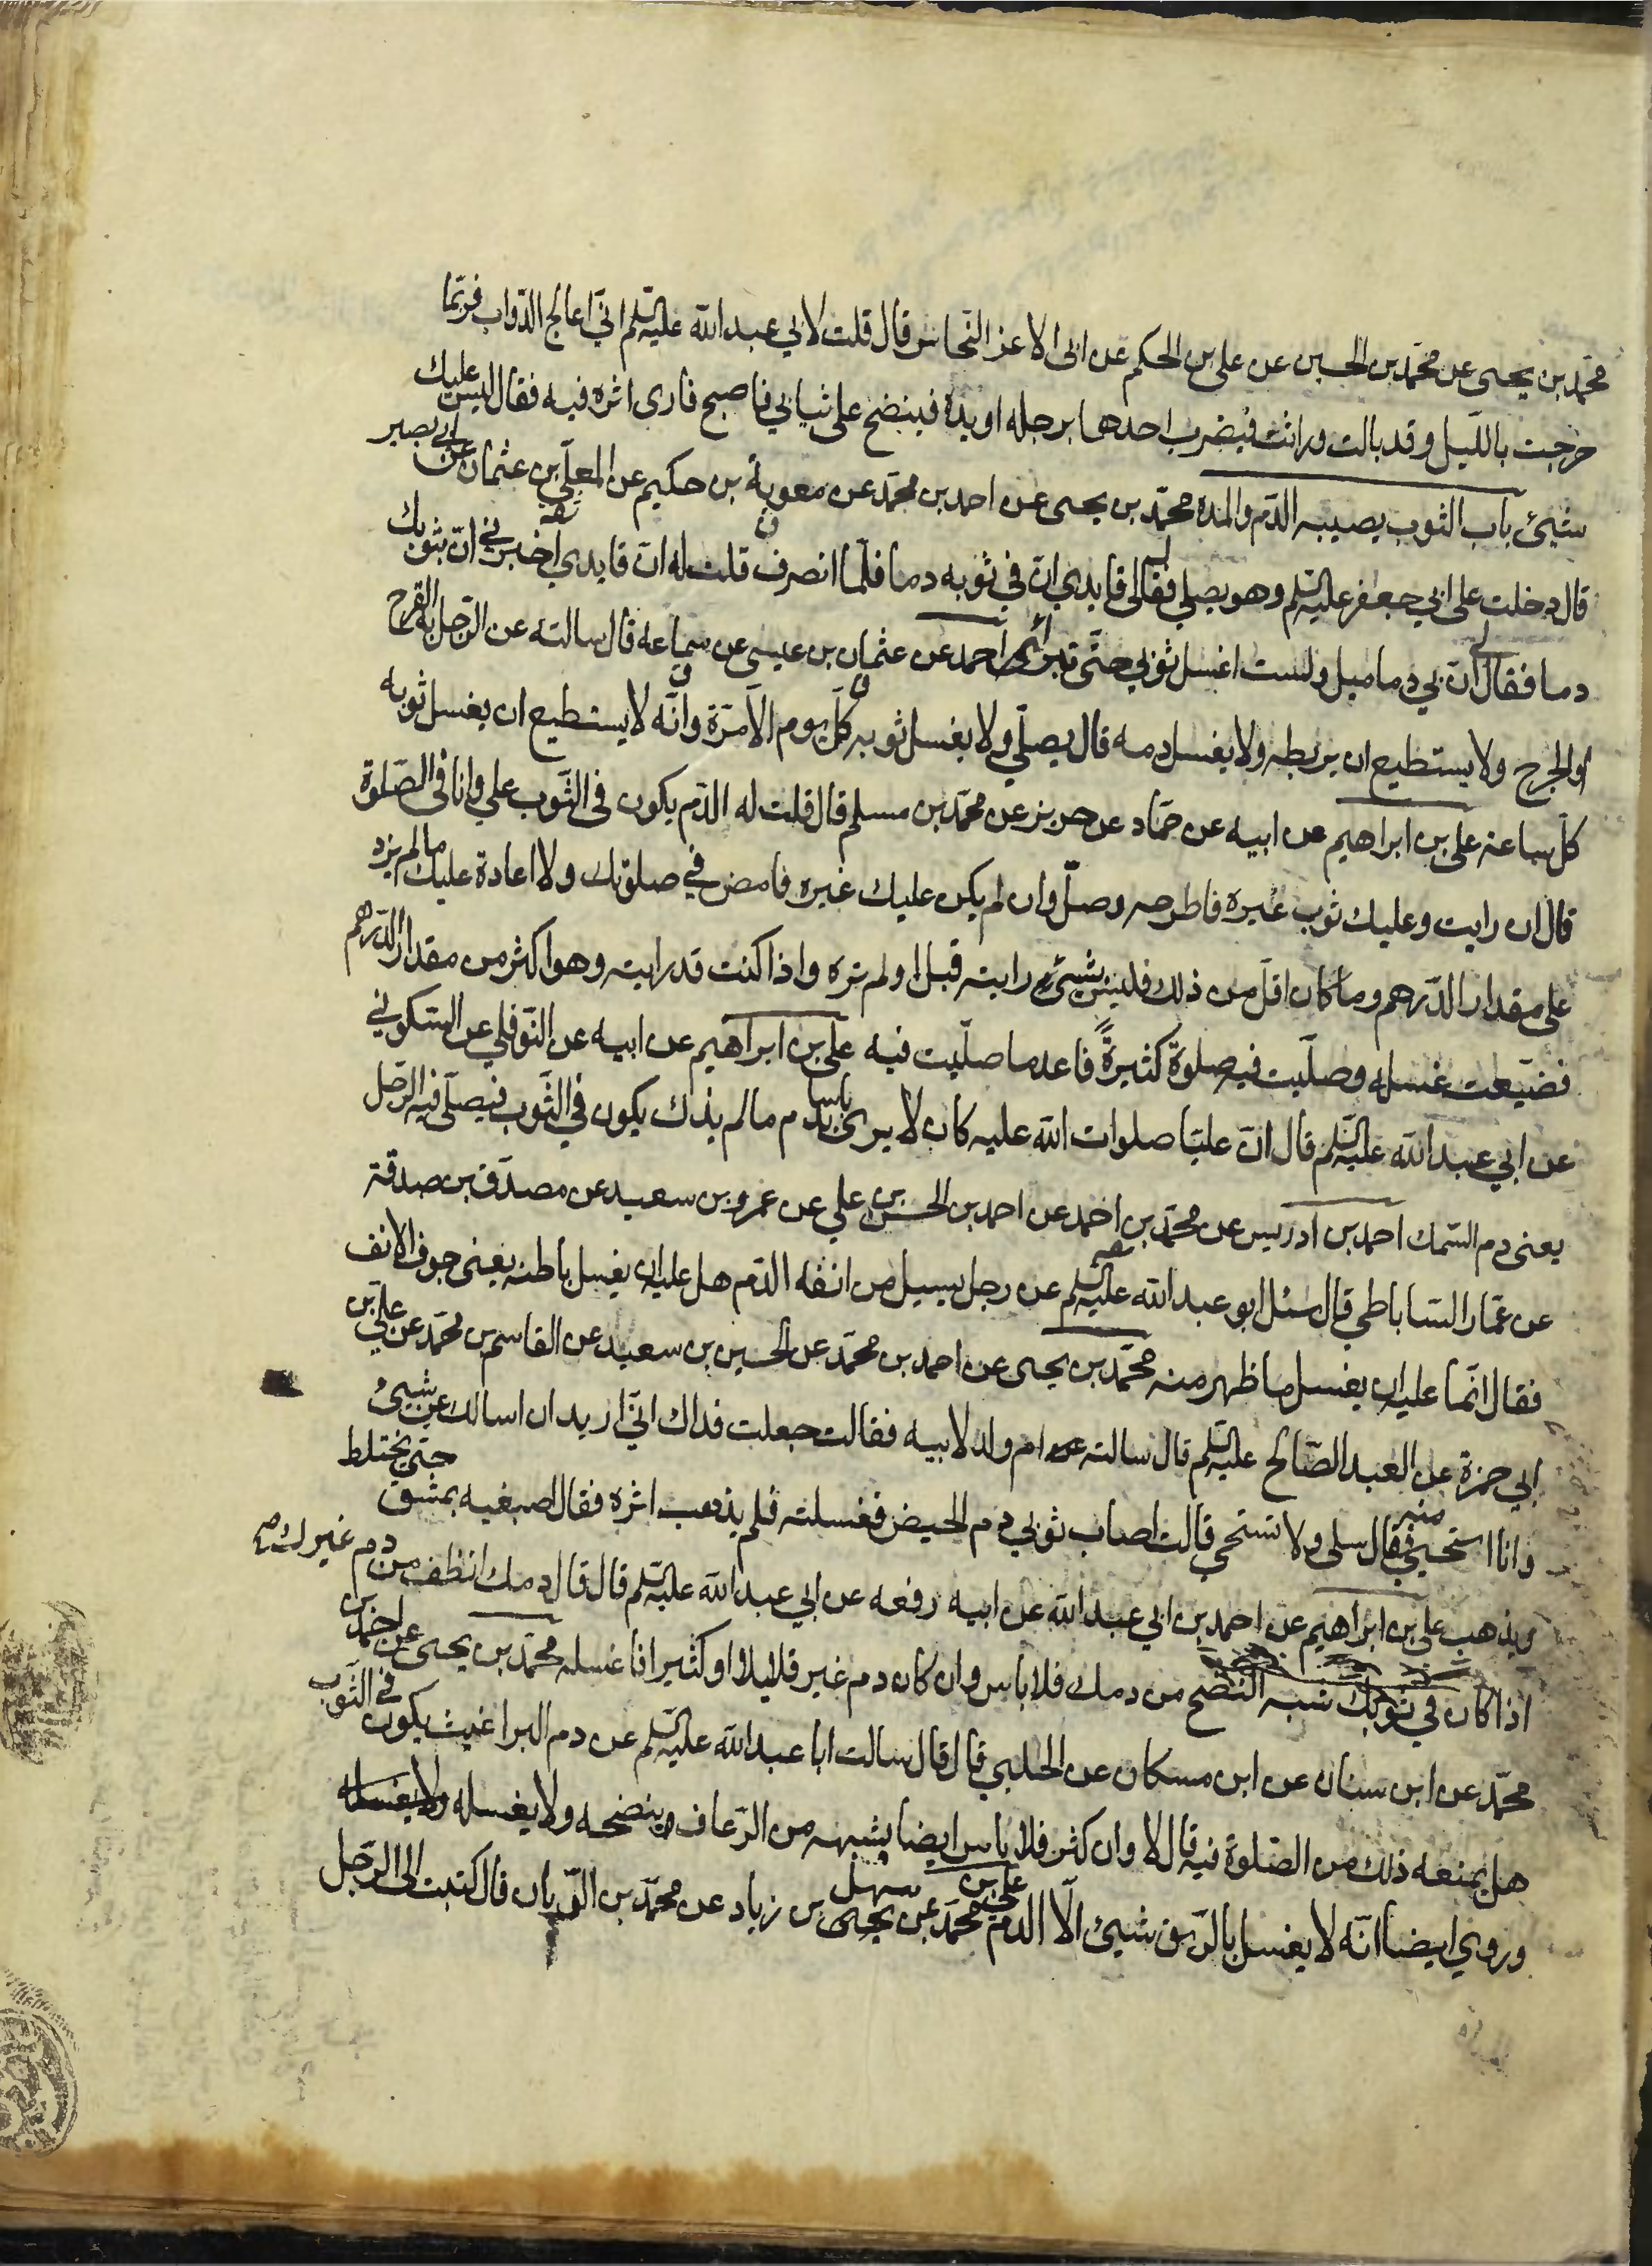 محمد بن يحيى عن محمد بن الحسين عن علي بن الحكم عن ابى الاعز النحاس قال قلت لابي عبد الله عليه السلم انى اعالج الدواب فربما
خرجت بالليل وقد بالت وراثت فيضرب احدها برجله او يده فينضح على ثيابي فاصبح فارى اثره فيه فقال ليس عليك
شيئ باب الثوب يصيبه الدم والمدة محمد بن يحيى عن احمد بن محمد عن معوية بن حكيم عن المعلى بن عثمان عن ابي بصير
قال دخلت على ابي جعفر عليه السلم وهو يصلي فقال لى قايدي ان في ثوبه دما فلما انصرف قلت له ان قايدي اخبرني ان بثوبك
دما فقال لي ان بي دماميل ولست اغسل ثوبي حتى تبرأ احمد عن عثمان بن عيسى عن سماعة قال سالته عن الرجل به القرح
او الجرح ولا يستطيع ان يربطه ولا يغسل دمه قال يصلي ولا يغسل ثوبه كل يوم الا مرة وانه لا يستطيع ان يغسل ثوبه
كل ساعة علي بن ابراهيم عن ابيه عن حماد عن حريز عن محمد بن مسلم قال قلت له الدم يكون فى الثوب علي وانا فى الصلوة
قال ان رايت وعليك ثوب غيره فاطرحه وصل وان لم يكن عليك غيره فامض في صلوتك ولا اعادة عليك ما لم يزد
على مقدار الدرهم وما كان اقل من ذلك فليس بشيئ رايته قبل او لم تره واذا كنت قد رايته وهو اكثر من مقدار الدرهم
فضيعت غسله وصليت فيه صلوة كثيرة فاعد ما صليت فيه علي بن ابراهيم عن ابيه عن النوفلي عن السكوني
عن ابي عبد الله عليه السلم قال ان عليا صلوات الله عليه كان لا يرى باسا بدم ما لم يذك يكون في الثوب فيصلي فيه الرجل
يعنى دم السمك احمد بن ادريس عن محمد بن احمد عن احمد بن الحسن بن علي عن عمرو بن سعيد عن مصدق بن صدقة
عن عمار الساباطي قال سئل ابو عبد الله عليه السلم عن رجل يسيل من انفه الدم هل عليه ان يغسل باطنه يعنى جوف الانف
فقال انما عليه ان يغسل ما ظهر منه محمد بن يحيى عن احمد بن محمد عن الحسين بن سعيد عن القاسم بن محمد عن علي بن
ابي حمزة عن العبد الصالح عليه السلم قال سالته ام ولد لابيه فقالت جعلت فداك انى اريد ان اسالك عن شيئ
وانا استحيي منه فقال سلى ولا تستحي قالت اصاب ثوبي دم الحيض فغسلته فلم يذهب اثره فقال اصبغيه بمشق حتى يختلط
ويذهب علي بن ابراهيم عن احمد بن ابي عبد الله عن ابيه رفعه عن ابي عبد الله عليه السلم قال قال دمك انظف من دم غيرك
اذا كان في ثوبك شبه النضح من دمك فلا باس وان كان دم غير قليلا او كثيرا فاغسله محمد بن يحيى عن احمد بن
محمد عن ابن سنان عن ابن مسكان عن الحلبي قال قال سالت ابا عبد الله عليه السلم عن دم البراغيث يكون في الثوب
هل يمنعه ذلك من الصلوة فيه قال لا وان كثر فلا باس ايضا بشبهه من الرعاف ينضحه ولا يغسله ولا يغسله
وروي ايضا انه لا يغسل بالريق شيئ الا الدم علي بن محمد عن سهل بن زياد عن محمد بن الريان قال كتبت الى الرجل